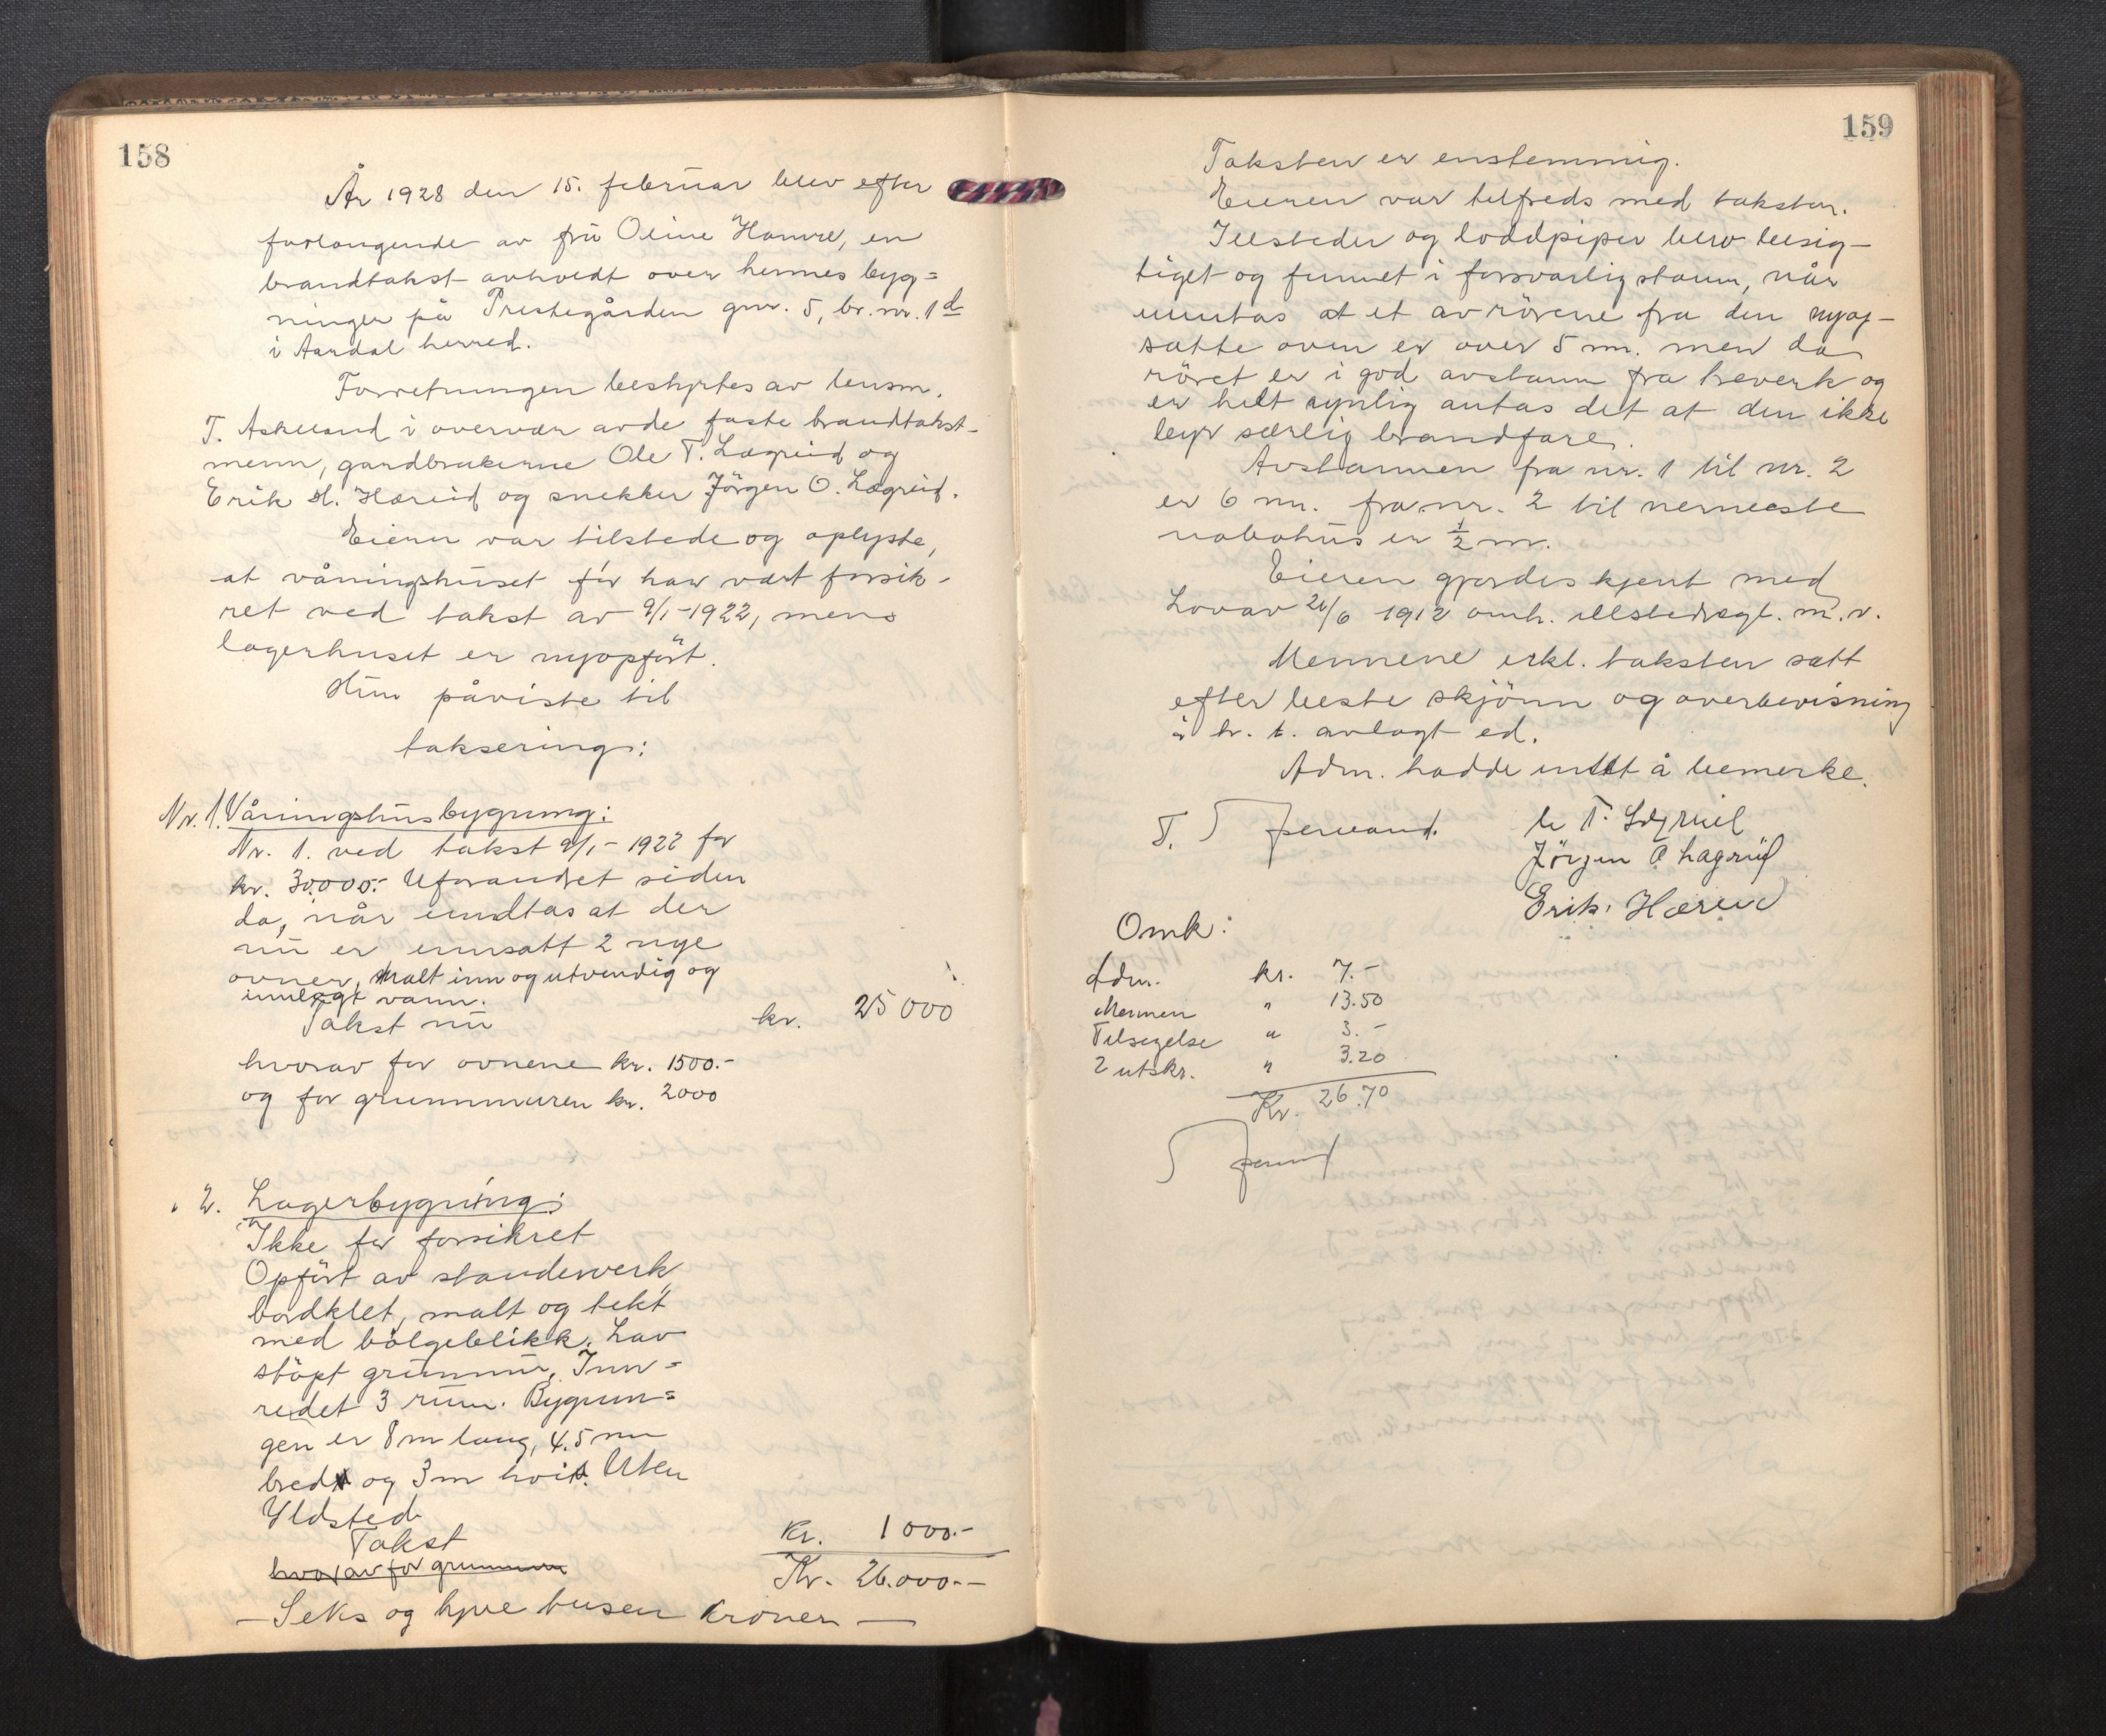 158
År 1928 den 15. februar blev efter
forlangende av frú Oline Hamre, en
brandtakst avholdt over hennes byg=
ninger på Prestegården gnr. 5, br. nr. 1 d
i Aardal herred.
Forretningen bestyrtes av lensm.
T. Askelund i overvær av de faste brandtakst-
menn, gardbrukerne Ole T. Lægreid og
Erik H. Hæreid og snekker Jörgen O. Lægreid.
Eieren var tilstede og oplyste,
at våningshúset för har vært forsik-
ret ved takst av 9/1-1922, mens
lagerhuset er nyopfört.
Hun påviste til
taksering:
Nr. 1. Våningshúsbygning:
Nr. 1. ved takst 9/1-1922 for
kr. 30.000.- Uforandret siden
da, når undtas at der
nú er innsatt 2 nye
ovner, malt inn og utvendig og
innlagt vann.
Takst nú kr. 25000
hvorav for ovnene kr. 1500.-
og for grunnmuren kr. 2000
" 2. Lagerbygning:
Ikke för forsikret
Opfört av standerverk
bordklet, malt og tekt
med bölgeblikk. Lav
stöpt grunnmúr, Inn=
redet 3 rúm. Bygnin=
gen er 8 m lang, 4.5 m
bred og 3 m höi. Uten
Ildsted
Takst kr. 1000.-
hvorav for grunnmúr Kr. 26.000.-
- Seks og tyve tusen kroner -
159
Taksten er enstemmig.
Eieren var tilfreds med taksten.
Illsteder og loddpiper blev besig-
tiget og funnet i forsvarlig stann, når
unntas at et av rörene fra den nyop-
satte oven er over 5 m. men da
röret er i god avstann fra treverk og
er helt synlig antas det at den ikke
byr særlig brandfare.
Avstannen fra nr. 1 til nr. 2
er 6 m. fra nr. 2 til nermeste
nabohús er 1/2 m.
Eieren gjordes kjent med
Lov av 21/6 1912 omh. illstedsægt. m.v.
Mennene erkl. taksten satt
efter beste skjönn og overbevisning
i h. t. avlagt ed.
Adm. hadde intet å bemerke.
T. Ole T. Lægreid
Jörgen O Lægreid
Erik Hæreid
Omk:
Adm. kr. 7.-
Mennen " 13.50
Tilsigelse " 3.-
2 utskr. " 3.20
Kr. 26.70